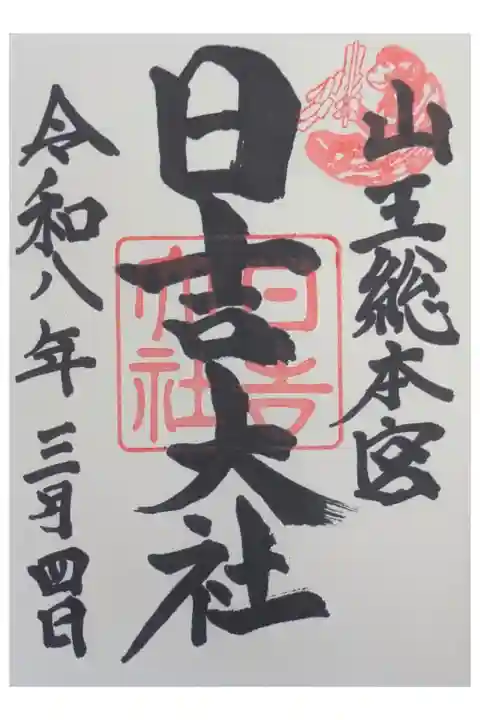 山王総本宮
日吉大社
日吉大社
令和八年三月四日